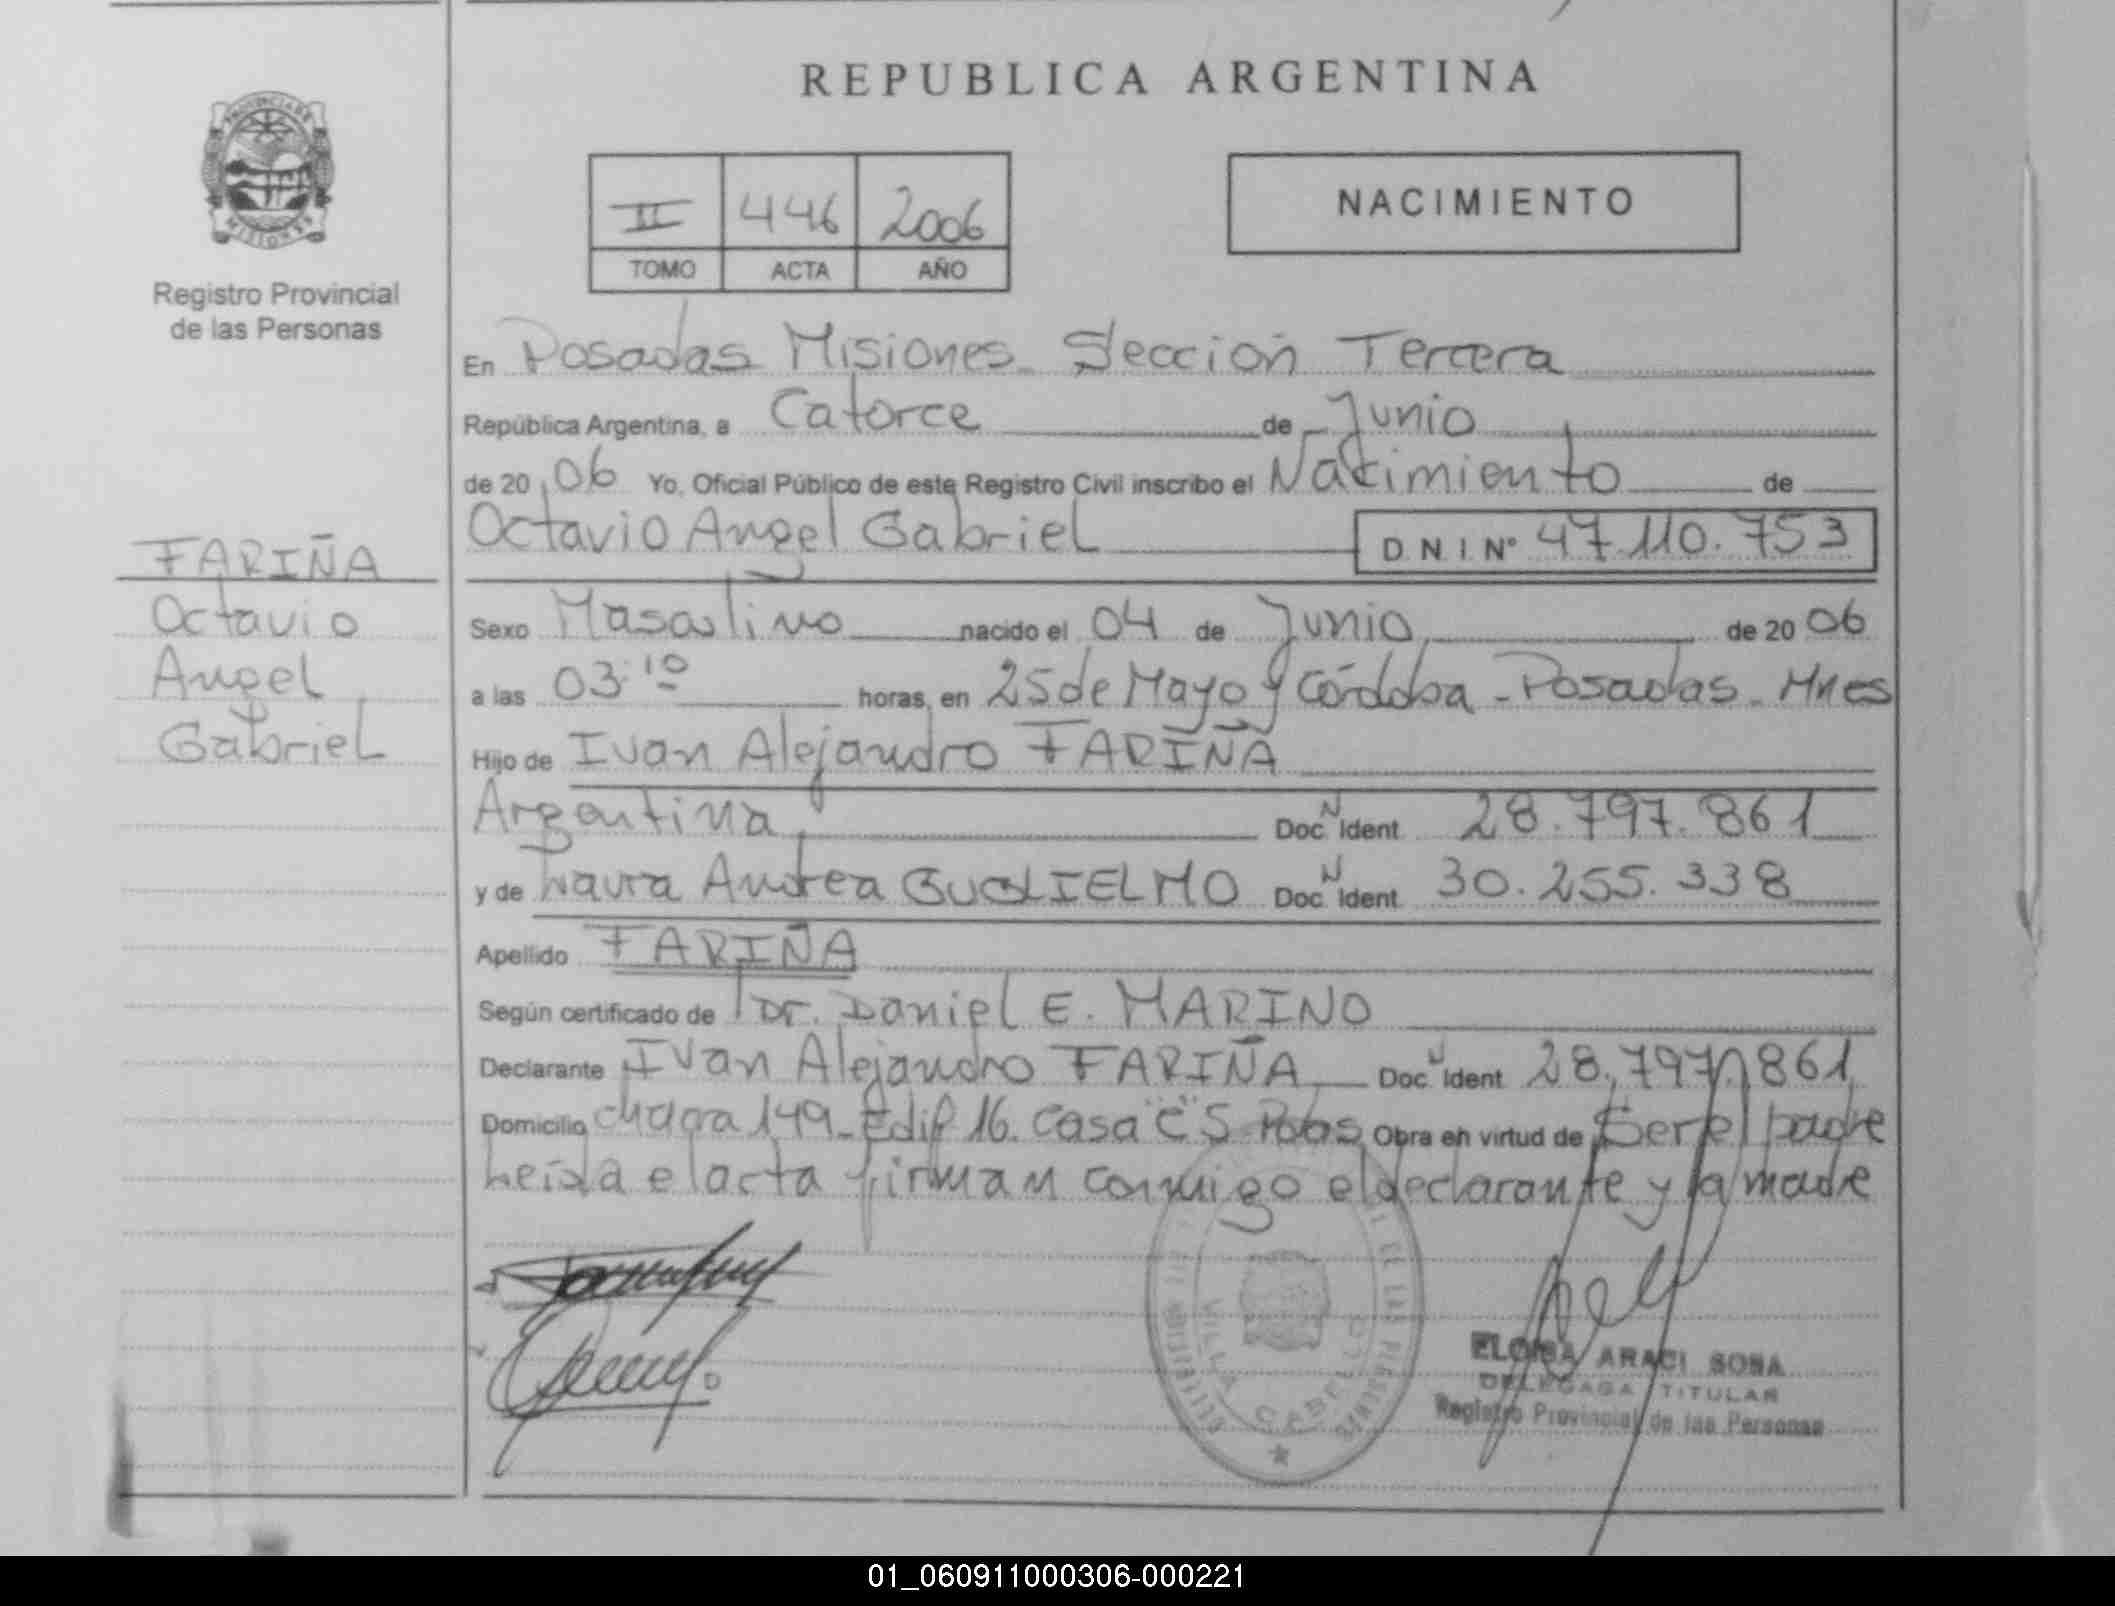 REPUBLICA ARGENTINA
PROVINCIA DE
MISIONES
Registro Provincial
de las Personas
II 446 2006
TOMO ACTA AÑO
NACIMIENTO
En Posadas Misiones Sección Tercera
República Argentina, a Catorce de Junio
de 20 06 Yo, Oficial Público de este Registro Civil inscribo el Nacimiento de
Octavio Angel Gabriel D.N.I. Nº 47.110.753
FARIÑA
Octavio
Angel
Gabriel
Sexo Masculino nacido el 04 de Junio de 20 06
a las 03:10 horas, en 25 de Mayo y Córdoba - Posadas - Mnes
Hijo de Ivan Alejandro FARIÑA
Argentina Doc. N Ident 28.797.861
y de Laura Andrea GUGLIELMO Doc. N Ident 30.255.338
Apellido FARIÑA
Según certificado de Dr. Daniel E. MARINO
Declarante Ivan Alejandro FARIÑA Doc. N Ident 28.797.861
Domicilio chacra 149 - Edif 16. Casa "C" S Pdas Obra en virtud de Ser el padre
Leída el acta firman conmigo el declarante y la madre
VILLA CABELLO
ELOISA ARACI SOSA
DELEGADA TITULAR
Registro Provincial de las Personas
01_060911000306-000221